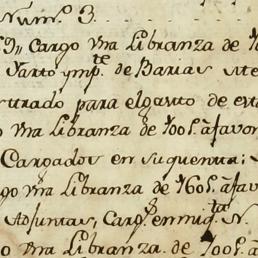 Num.º 3.
Cargo una Libranza de
Yarto ymp.te de Barias
para el gasto de
una Libranza de 100p.s a favor
Cargados en su quenta:
una Libranza de 160p.s a favor
Adjuntas, Carg.s en mi q.ta N.
una Libranza de 100p.s a